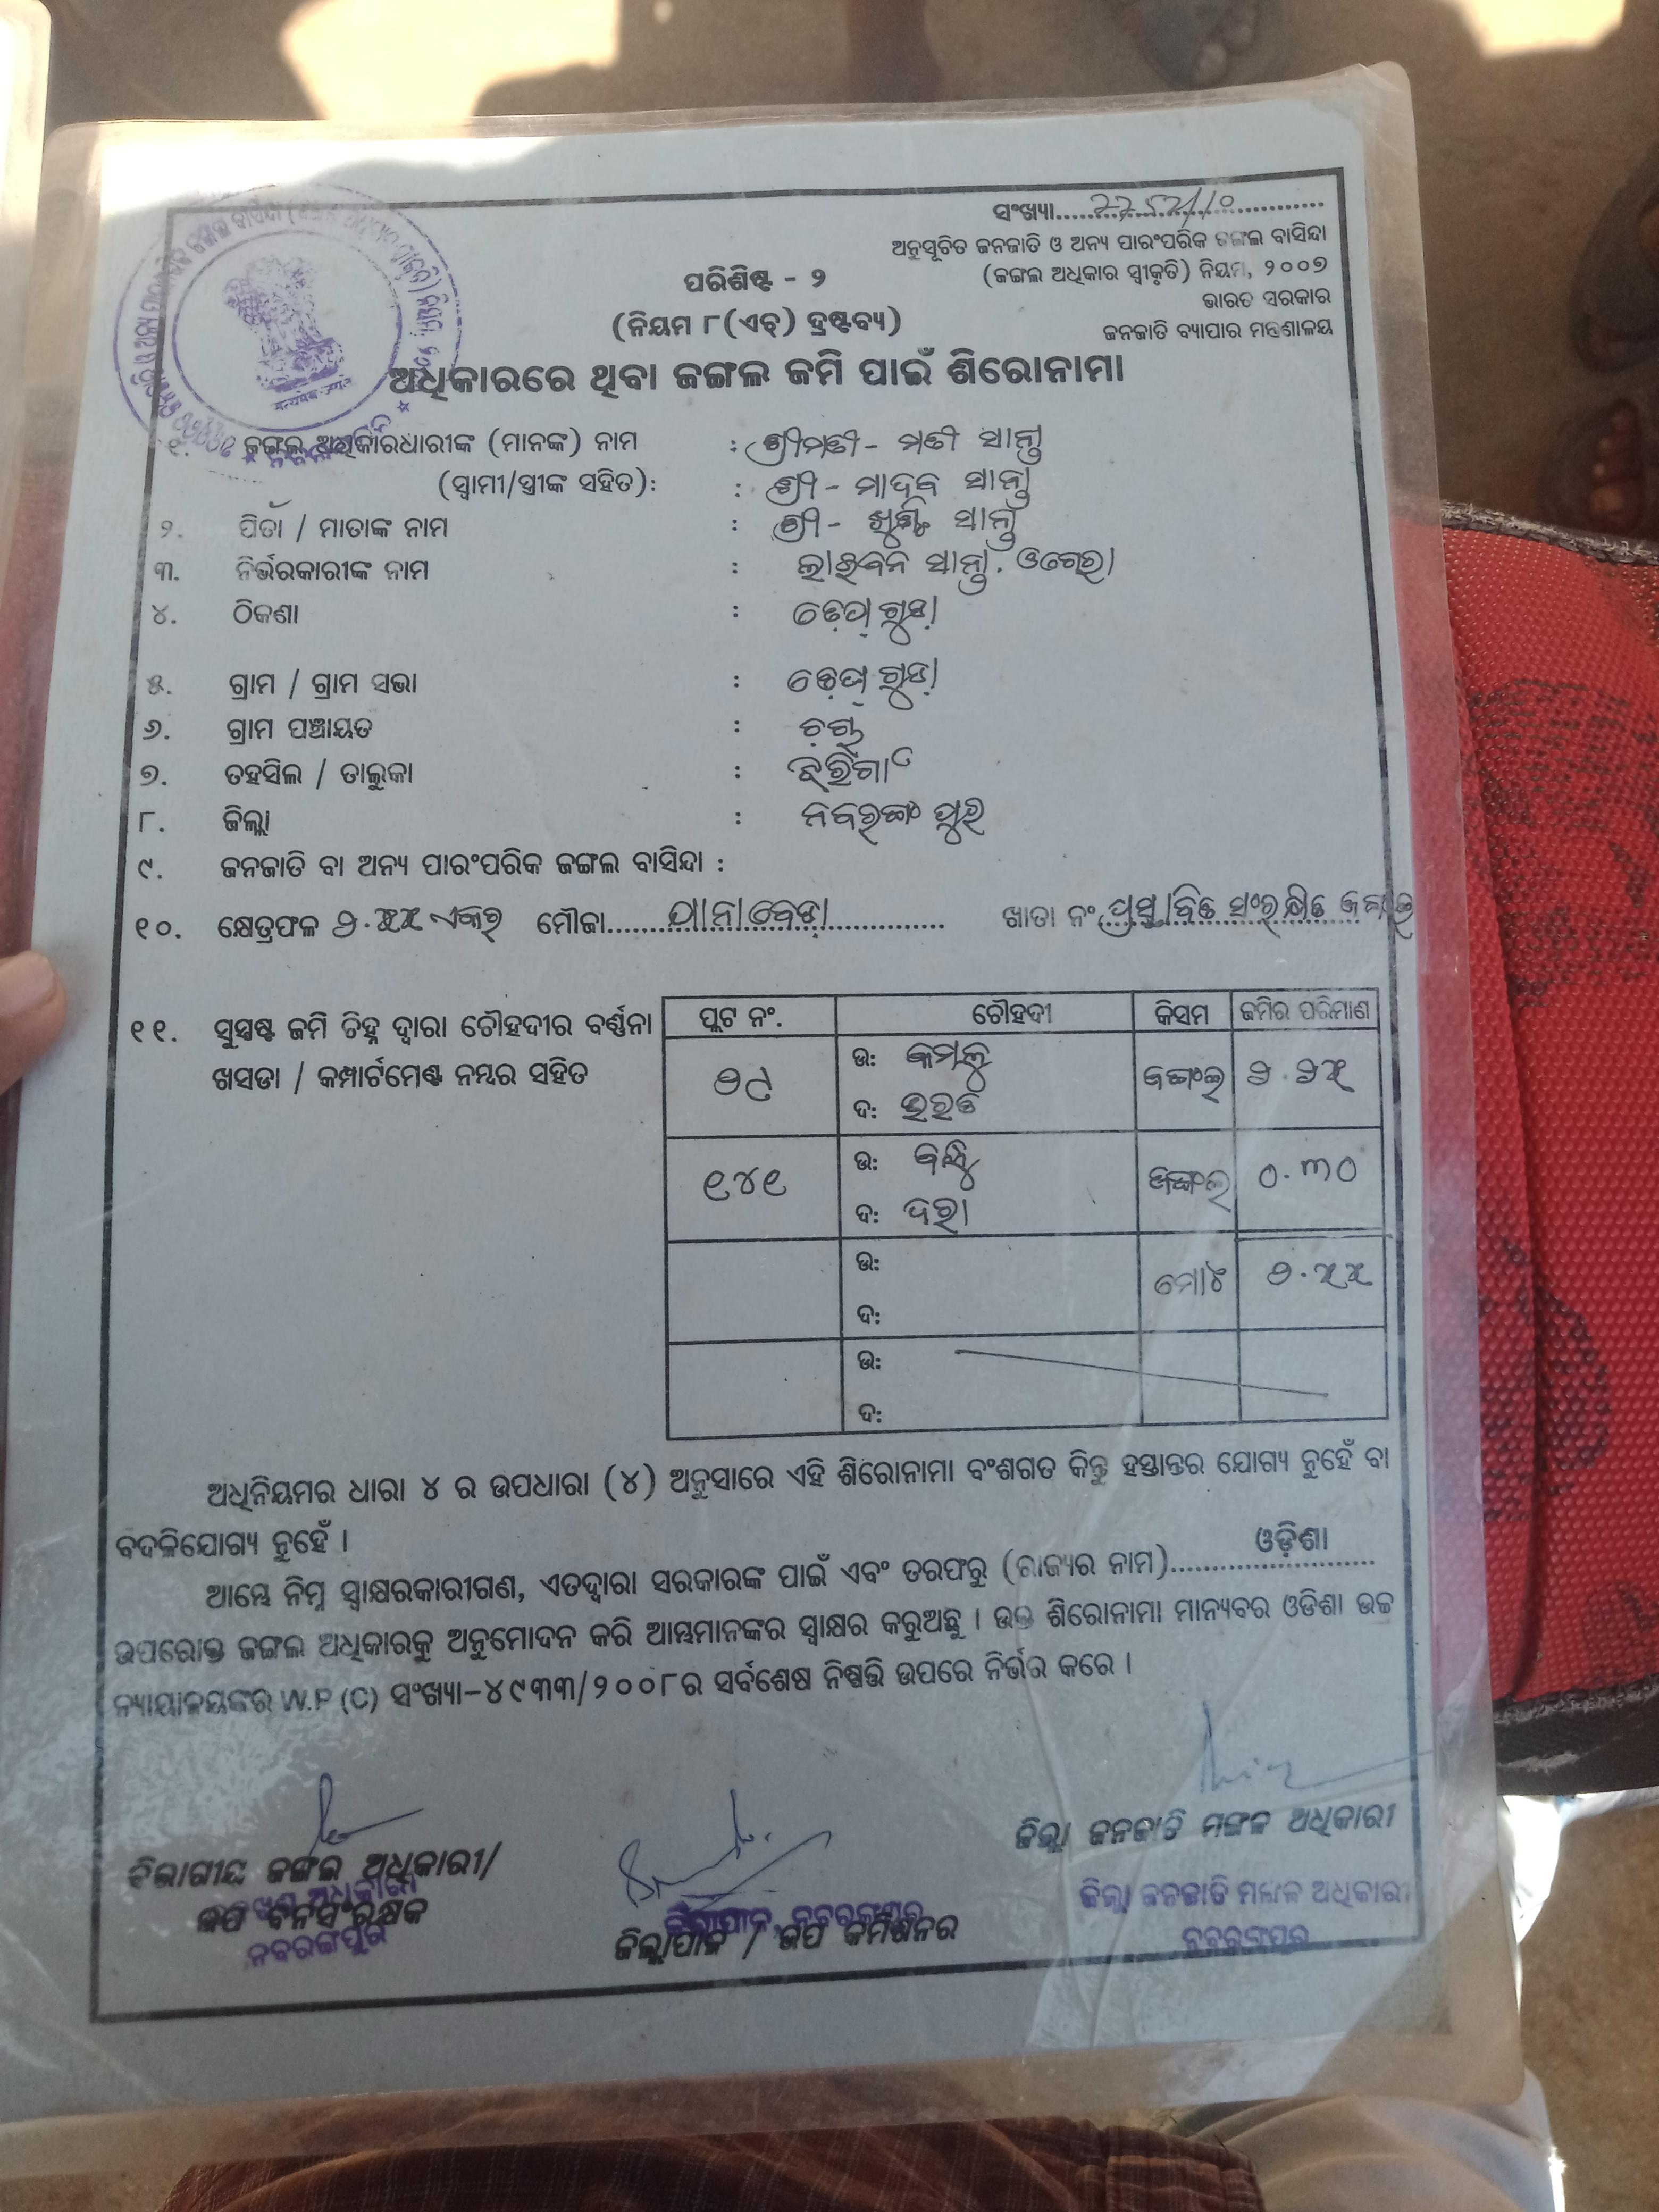 ସଂଖ୍ୟା.....2252/10
ଅନୁସୂଚିତ ଜନଜାତି ଓ ଅନ୍ୟ ପାରଂପରିକ ଜଙ୍ଗଲ ବାସିନ୍ଦା
(ଜଙ୍ଗଲ ଅଧିକାର ସ୍ୱୀକୃତି) ନିୟମ, ୨୦୦୭
ଭାରତ ସରକାର
ଜନଜାତି ବ୍ୟାପାର ମନ୍ତ୍ରଣାଳୟ
ପରିଶିଷ୍ଟ - ୨
(ନିୟମ ୮(ଏଚ୍) ଦ୍ରଷ୍ଟବ୍ୟ)
ଅଧିକାରରେ ଥିବା ଜଙ୍ଗଲ ଜମି ପାଇଁ ଶିରୋନାମା
୧. ଜଙ୍ଗଲ ଅଧିକାରଧାରୀଙ୍କ (ମାନଙ୍କ) ନାମ : ଶ୍ରୀମତୀ - ମତୀ ସାନ୍ତା
(ସ୍ୱାମୀ/ସ୍ତ୍ରୀଙ୍କ ସହିତ): : ଶ୍ରୀ - ମାଦବ ସାନ୍ତା
୨. ପିତା / ମାତାଙ୍କ ନାମ : ଶ୍ରୀ - ସାନ୍ତା
୩. ନିର୍ଭରକାରୀଙ୍କ ନାମ : ସାନ୍ତା.
୪. ଠିକଣା :
୫. ଗ୍ରାମ / ଗ୍ରାମ ସଭା :
୬. ଗ୍ରାମ ପଞ୍ଚାୟତ :
୭. ତହସିଲ / ତାଲୁକା : ଝରିଗାଁ
୮. ଜିଲ୍ଲା : ନବରଙ୍ଗପୁର
୯. ଜନଜାତି ବା ଅନ୍ୟ ପାରଂପରିକ ଜଙ୍ଗଲ ବାସିନ୍ଦା :
୧୦. କ୍ଷେତ୍ରଫଳ ୨.୫୫ ଏକର ମୌଜା..... ଖାତା ନଂ. ପ୍ରସ୍ତାବିତ ସଂରକ୍ଷିତ ଜଙ୍ଗଲ
୧୧. ସୁସ୍ପଷ୍ଟ ଜମି ଚିହ୍ନ ଦ୍ୱାରା ଚୌହଦୀର ବର୍ଣ୍ଣନା
ଖସଡା / କମ୍ପାର୍ଟମେଣ୍ଟ ନମ୍ବର ସହିତ
ପ୍ଲଟ ନଂ. ଚୌହଦୀ କିସମ ଜମିର ପରିମାଣ
୨୯ ଉ: କମଳୁ ଜଙ୍ଗଲ ୨.୨୫
ଦ: ଭରତ
୧୪୧ ଉ: ଜଙ୍ଗଲ ୦.୩୦
ଦ:
ଉ: ମୋଟ ୨.୫୫
ଦ:
ଉ:
ଦ:
ଅଧିନିୟମର ଧାରା ୪ ର ଉପଧାରା (୪) ଅନୁସାରେ ଏହି ଶିରୋନାମା ବଂଶଗତ କିନ୍ତୁ ହସ୍ତାନ୍ତର ଯୋଗ୍ୟ ନୁହେଁ ବା
ବଦଳିଯୋଗ୍ୟ ନୁହେଁ ।
ଆମ୍ଭେ ନିମ୍ନ ସ୍ୱାକ୍ଷରକାରୀଗଣ, ଏତଦ୍ୱାରା ସରକାରଙ୍କ ପାଇଁ ଏବଂ ତରଫରୁ (ରାଜ୍ୟର ନାମ).....ଓଡ଼ିଶା
ଉପରୋକ୍ତ ଜଙ୍ଗଲ ଅଧିକାରକୁ ଅନୁମୋଦନ କରି ଆମ୍ଭମାନଙ୍କର ସ୍ୱାକ୍ଷର କରୁଅଛୁ । ଉକ୍ତ ଶିରୋନାମା ମାନ୍ୟବର ଓଡିଶା ଉଚ୍ଚ
ନ୍ୟାୟାଳୟଙ୍କର W.P (C) ସଂଖ୍ୟା-୪୯୩୩/୨୦୦୮ର ସର୍ବଶେଷ ନିଷ୍ପତ୍ତି ଉପରେ ନିର୍ଭର କରେ ।
ବିଭାଗୀୟ ଜଙ୍ଗଲ ଅଧିକାରୀ/
ଉପ ବନସଂରକ୍ଷକ
ନବରଙ୍ଗପୁର
ଜିଲ୍ଲାପାଳ, ନବରଙ୍ଗପୁର
ଜିଲ୍ଲାପାଳ / ଉପ କମିଶନର
ଜିଲ୍ଲା ଜନଜାତି ମଙ୍ଗଳ ଅଧିକାରୀ
ଜିଲ୍ଲା ଜନଜାତି ମଙ୍ଗଳ ଅଧିକାରୀ
ନବରଙ୍ଗପୁର